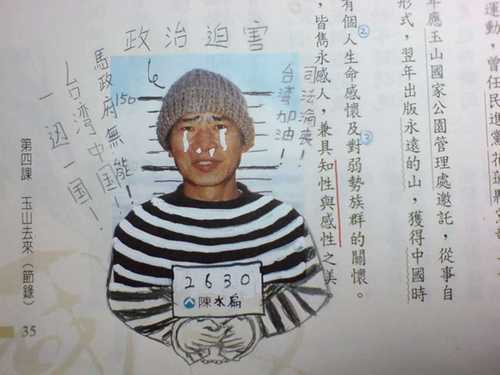 運動，曾任民進黨
年應玉山國家公園管理處邀託，從事自
形式，翌年出版永遠的山，獲得中國時
有個人生命感懷及對弱勢族群的關懷。
，皆雋永感人，兼具知性與感性之美
政治迫害
司法淪喪！
台湾加油！
150
馬政府無能！
台湾中国
一边一国！
2630
陳水扁
第四課 玉山去來（節錄）
35